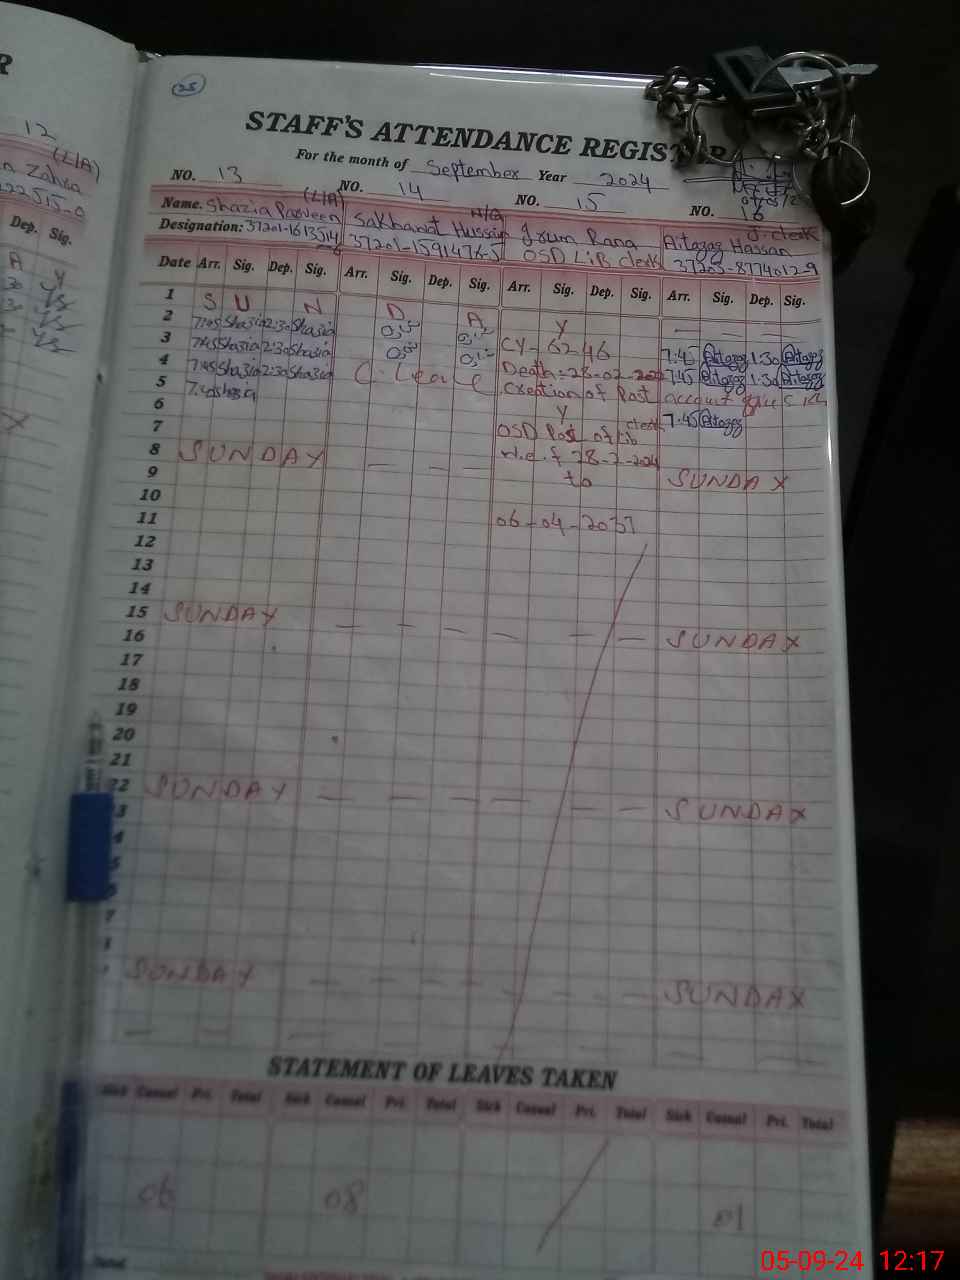 25
STAFF'S ATTENDANCE REGISTER
For the month of September Year 2024
NO. 13 NO. 14 NO. 15 NO. 16
Name. Shazia Parveen (LIA) Sakhawat Hussain N/Q Irum Rana Aitazaz Hassan J.clerk
Designation: 37201-1613514 37201-1591476-5 OSD Lib clerk 37203-8774012-9
Date Arr. Sig. Dep. Sig. Arr. Sig. Dep. Sig. Arr. Sig. Dep. Sig. Arr. Sig. Dep. Sig.
1 S U N D A Y
2 7:45 Shazia 2:30 Shazia CY-6246 7:45 Aitazaz 1:30 Aitazaz
3 7:45 Shazia 2:30 Shazia Death:-28-02-2024 7:45 Aitazaz 1:30 Aitazaz
4 7:45 Shazia 2:30 Shazia C. Leave Creation of Post account
5 7:40 Shazia Y 7:45 Aitazaz
6 OSD Post of Lib clerk
7 w.e.f 28-2-2024
8 SUNDAY to SUNDAY
9
10 06-04-2037
11
12
13
14
15 SUNDAY SUNDAY
16
17
18
19
20
21
22 SUNDAY SUNDAY
3
4
SUNDAY SUNDAY
STATEMENT OF LEAVES TAKEN
Sick Casual Pri. Total Sick Casual Pri. Total Sick Casual Pri. Total Sick Casual Pri. Total
06 08 01
R
12
(LIA)
Zahra
22515-0
Dep. Sig.
A Y
X
05-09-24 12:17